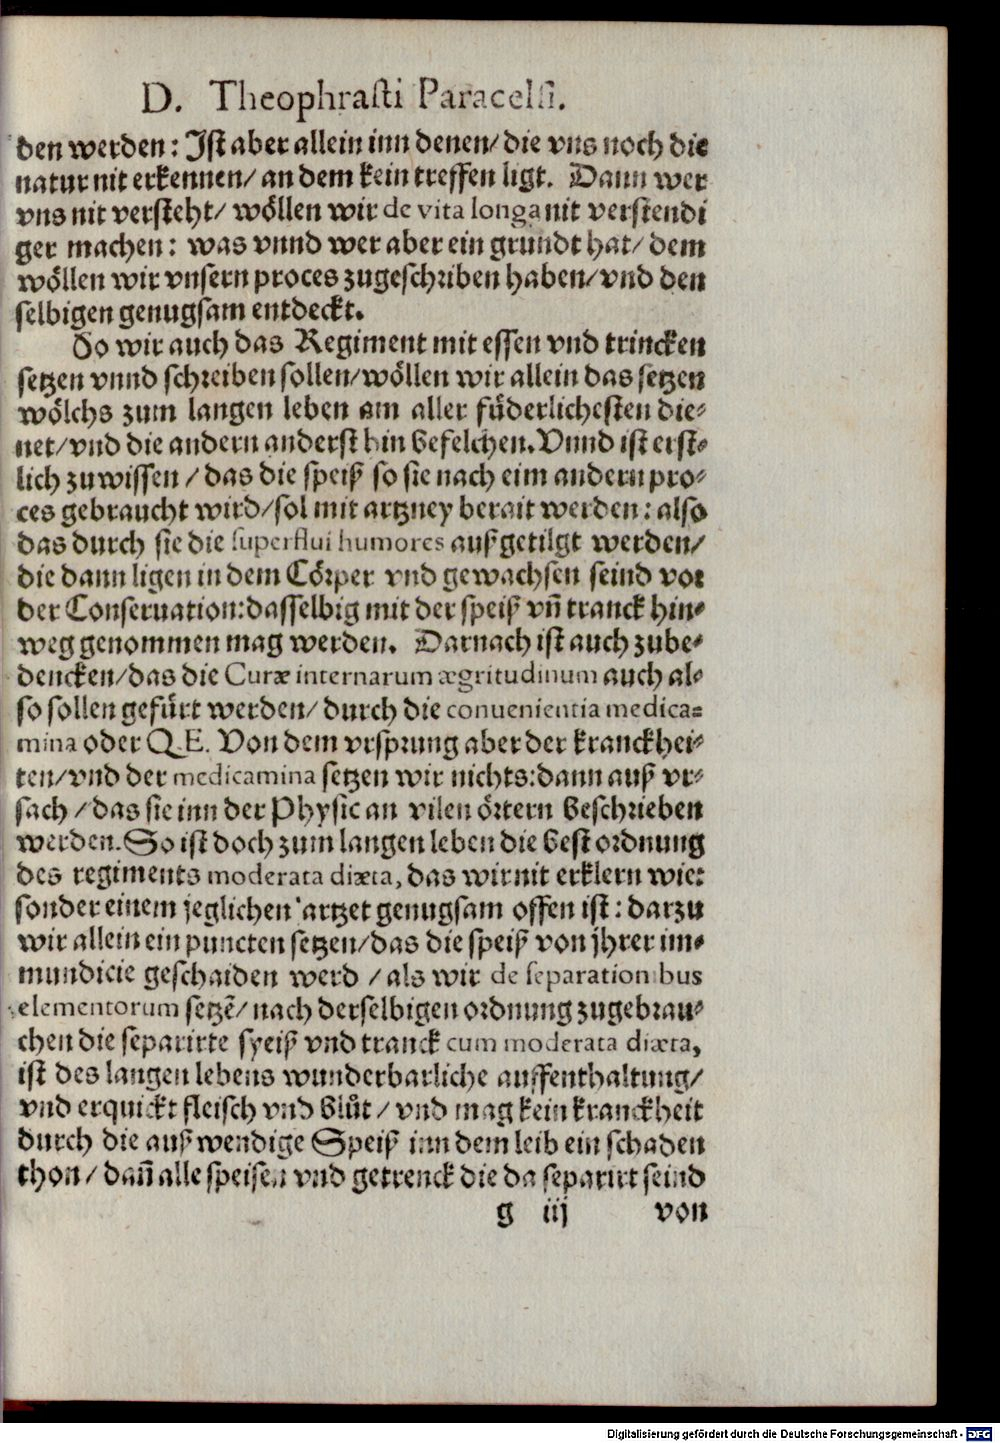 D. Theophrasti Paracelsi.
den werden: Ist aber allein inn denen/ die vns noch die
natur nit erkennen/ an dem kein treffen ligt. Dann wer
vns nit versteht/ wöllen wir de vita longa nit verstendi
ger machen: was vnnd wer aber ein grundt hat/ dem
wöllen wir vnsern proces zugeschriben haben/ vnd den
selbigen genugsam entdeckt.
So wir auch das Regiment mit essen vnd trincken
setzen vnnd schreiben sollen/ wöllen wir allein das setzen
wölchs zum langen leben am aller füderlichesten die-
net/ vnd die andern anderst hin befelchen. Vnnd ist erst-
lich zuwissen / das die speiß so sie nach eim andern pro-
ces gebraucht wird/ sol mit artzney berait werden: also
das durch sie die superflui humores außgetilgt werden/
die dann ligen in dem Cörper vnd gewachsen seind vor
der Conseruation: dasselbig mit der speiß vñ tranck hin-
weg genommen mag werden. Darnach ist auch zube-
dencken/ das die Curæ internarum ægritudinum auch al-
so sollen gefürt werden/ durch die conuenientia medica-
mina oder Q.E. Von dem vrsprung aber der kranckhei-
ten/ vnd der medicamina setzen wir nichts: dann auß vr-
sach / das sie inn der Physic an vilen örtern beschrieben
werden. So ist doch zum langen leben die best ordnung
des regiments moderata diæta, das wir nit erklern wie:
sonder einem jeglichen artzet genugsam offen ist: darzu
wir allein ein puncten setzen/ das die speiß von jhrer im-
mundicie geschaiden werd / als wir de separationibus
elementorum setzẽ/ nach derselbigen ordnung zugebrau-
chen die separirte syeiß vnd tranck cum moderata diæta,
ist des langen lebens wunderbarliche auffenthaltung/
vnd erquickt fleisch vnd blůt / vnd mag kein kranckheit
durch die außwendige Speiß inn dem leib ein schaden
thon/ dañ alle speisen vnd getrenck die da separirt seind
g iij von
Digitalisierung gefördert durch die Deutsche Forschungsgemeinschaft - DFG